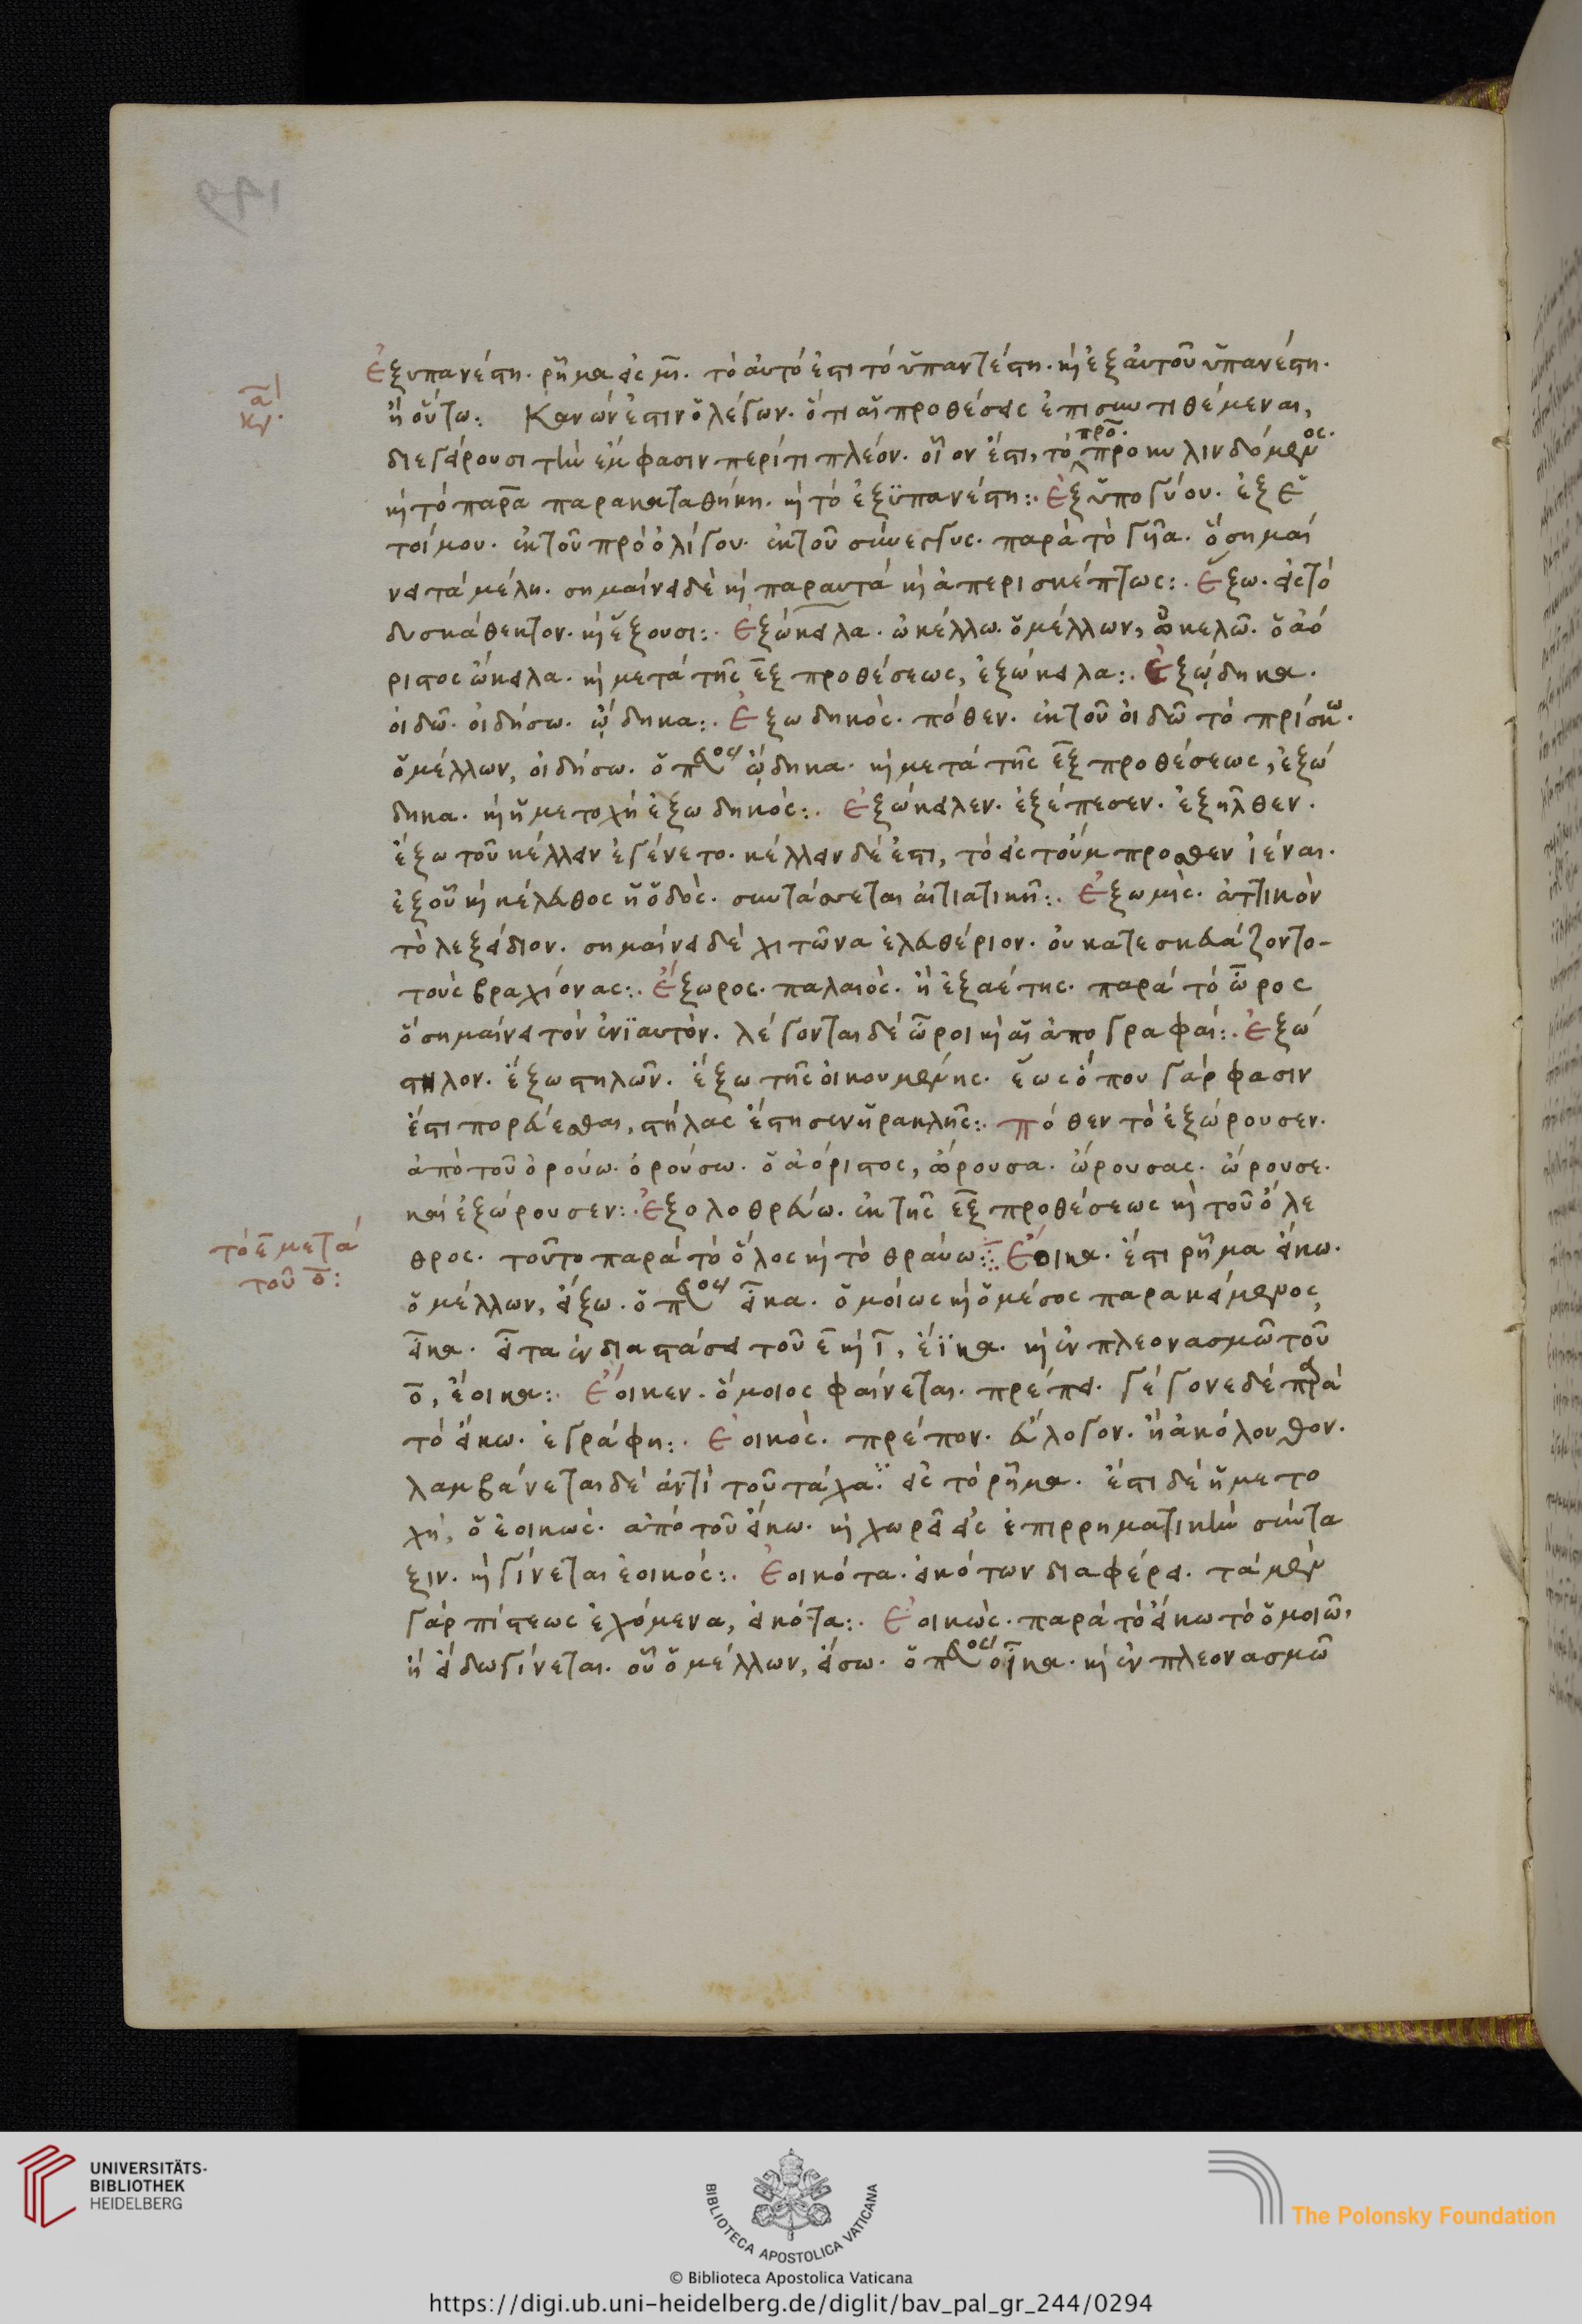 ἐξυπανέστη. ῥῆμα εἰς μι. τὸ αὐτό ἐστι τὸ ὕπαντέστη. καὶ ἐξ αὐτοῦ ὕπανέστη.
κα
ἢ οὕτω: Κανών ἐστιν ὁ λέγων. ὅτι αἱ προθέσεις ἐπισυντιθέμεναι,
διεγείρουσι τὴν ἔμφασιν περί τι πλέον. οἷον ἔστι, τὸ πρὸ. προκυλινδόμενος.
καὶ τὸ παρα παρακαταθήκη. καὶ τὸ ἐξϋπανέστη:. Ἐξ ὑπογύου. ἐξ ἑ
τοίμου. ἐκ τοῦ πρὸ ὀλίγου. ἐκ τοῦ σύνεγγυς. παρὰ τὸ γῦα. ὃ σημαί
νει τὰ μέλη. σημαίνει δὲ καὶ παραυτά καὶ ἀπερισκέπτως:. Ἕξω. εἰς τό
δυσκάθεκτον. καὶ ἕξουσι:. Ἐξώκειλα. ὠκέλλω. ὁ μέλλων, ὠκελῶ. ὁ ἀό
ριστος ὤκειλα. καὶ μετὰ τῆς ἐξ προθέσεως, ἐξώκειλα:. Ἐξῴδηκα.
οἰδῶ. οἰδήσω. ᾤδηκα:. Ἐξωδηκός. πόθεν. ἐκ τοῦ οἰδῶ τὸ πρίσκω.
ὁ μέλλων, οἰδήσω. ὁ πρκος ᾤδηκα. καὶ μετὰ τῆς ἐξ προθέσεως, ἐξώ
δηκα. καὶ ἡ μετοχὴ ἐξωδηκός:. Ἐξώκειλεν. ἐξέπεσεν. ἐξῆλθεν.
ἔξω τοῦ κέλλειν ἐγένετο. κέλλειν δέ ἐστι, τὸ εἰς τοὔμπροσθεν ἰέναι.
ἐξ οὗ καὶ κέλευθος ἡ ὁδός. συντάσσεται αἰτιατικῇ:. Ἐξωμίς. ἀττικὸν
τὸ λεξείδιον. σημαίνει δὲ χιτῶνα ἐλευθέριον. οὐ κατεσκευάζοντο-
τοὺς βραχίονας:. Ἔξωρος. παλαιός. ἢ ἑξαέτης. παρὰ τὸ ὦρος
ὃ σημαίνει τὸν ἐνϊαυτόν. λέγονται δὲ ὧροι καὶ αἱ ἀπογραφαί:. Ἐξώ
στηλον. ἔξω στηλῶν. ἔξω τῆς οἰκουμένης. ἕως ὅπου γάρ φασιν
ἔστι πορεύεσθαι, στήλας ἔστησεν ἡρακλῆς:. πόθεν τὸ ἐξώρουσεν.
ἀπὸ τοῦ ὀρούω. ὀρούσω. ὁ ἀόριστος, ὤρουσα. ὤρουσας. ὤρουσε.
καὶ ἐξώρουσεν:. Ἐξολοθρεύω. ἐκ τῆς ἐξ προθέσεως καὶ τοῦ ὄλε
τὸ ε μετὰ
τοῦ ο:
θρος. τοῦτο παρὰ τὸ ὅλος καὶ τὸ θραύω:. Ἔοικα. ἔστι ῥῆμα εἴκω.
ὁ μέλλων, εἴξω. ὁ πρκος εἶκα. ὁμοίως καὶ ὁ μέσος παρακείμενος,
εἶκα. εἶτα ἐν διαστάσει τοῦ ε καὶ ι, ἔϊκα. καὶ ἐν πλεονασμῶ τοῦ
ο, ἔοικα:. Ἔοικεν. ὅμοιος φαίνεται. πρέπει. γέγονε δὲ παρὰ
τὸ εἴκω. ἐγράφη:. Ἐοικός. πρέπον. εὔλογον. ἢ ἀκόλουθον.
λαμβάνεται δὲ ἀντὶ τοῦ τάχα. εἰς τὸ ῥῆμα. ἔστι δὲ ἡ μετο
χή, ὁ ἐοικώς. ἀπὸ τοῦ εἴκω. καὶ χωρεῖ εἰς ἐπιρρηματικὴν σύντα
ξιν. καὶ γίνεται ἐοικός:. Ἐοικότα. εἰκότων διαφέρει. τὰ μὲν
γὰρ πίστεως ἐχόμενα, εἰκότα:. Ἐοικώς. παρὰ τὸ εἴκω τὸ ὁμοιῶ,
ἢ εἴδω γίνεται. οὗ ὁ μέλλων, εἴσω. ὁ πρκος οἶκα. καὶ ἐν πλεονασμῶ
UNIVERSITÄTS-
BIBLIOTHEK
HEIDELBERG
BIBLIOTECA APOSTOLICA VATICANA
The Polonsky Foundation
© Biblioteca Apostolica Vaticana
https://digi.ub.uni-heidelberg.de/diglit/bav_pal_gr_244/0294